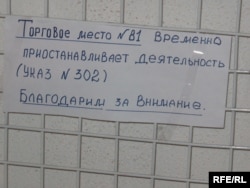 Торговое место №81 временно
приостанавливает деятельность
(УКАЗ №302)
Благодарим за внимание.
RFE/RL